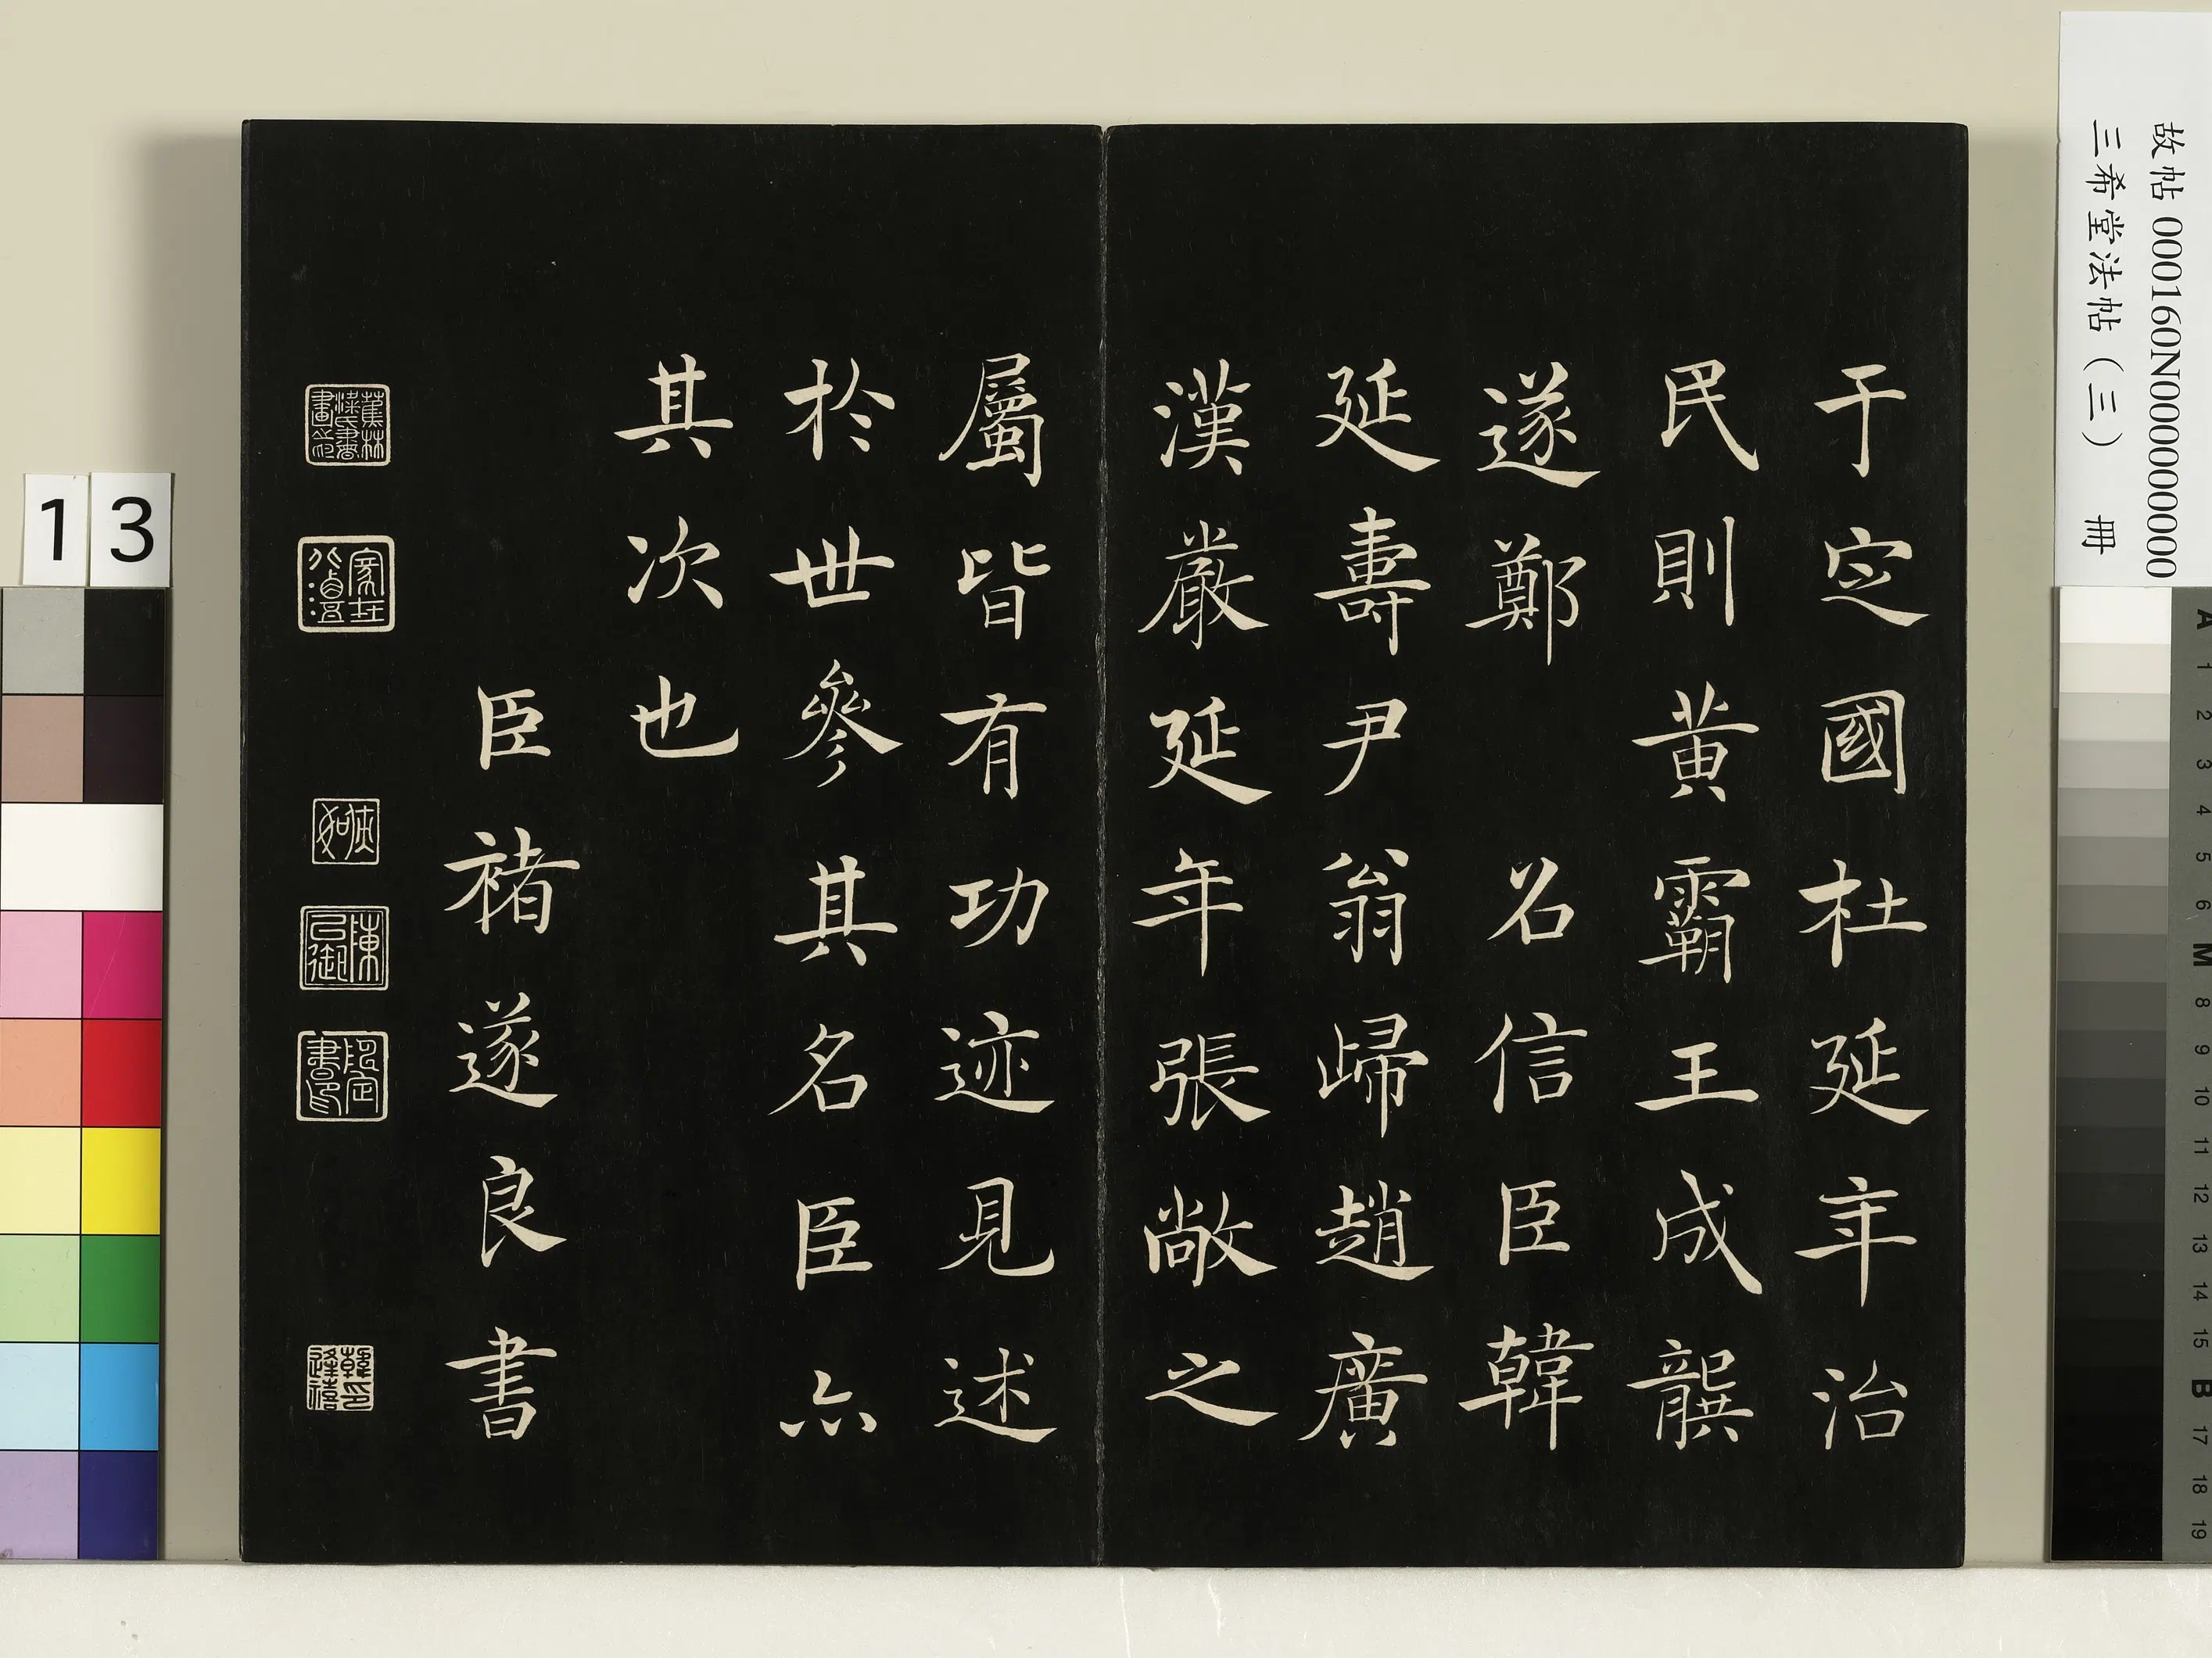 故帖 000160N000000000
三希堂法帖（三） 冊
于定國杜延年治
民則黄霸王成龔
遂鄭 名信臣韓
延壽尹翁歸趙廣
漢嚴延年張敞之
屬皆有功迹見述
於世參其名臣亦
其次也
臣褚遂良書
蕉林
梁氏書
畫之印
13
A 1 2 3 4 5 6 M 8 9 10 11 12 13 14 15 B 17 18 19